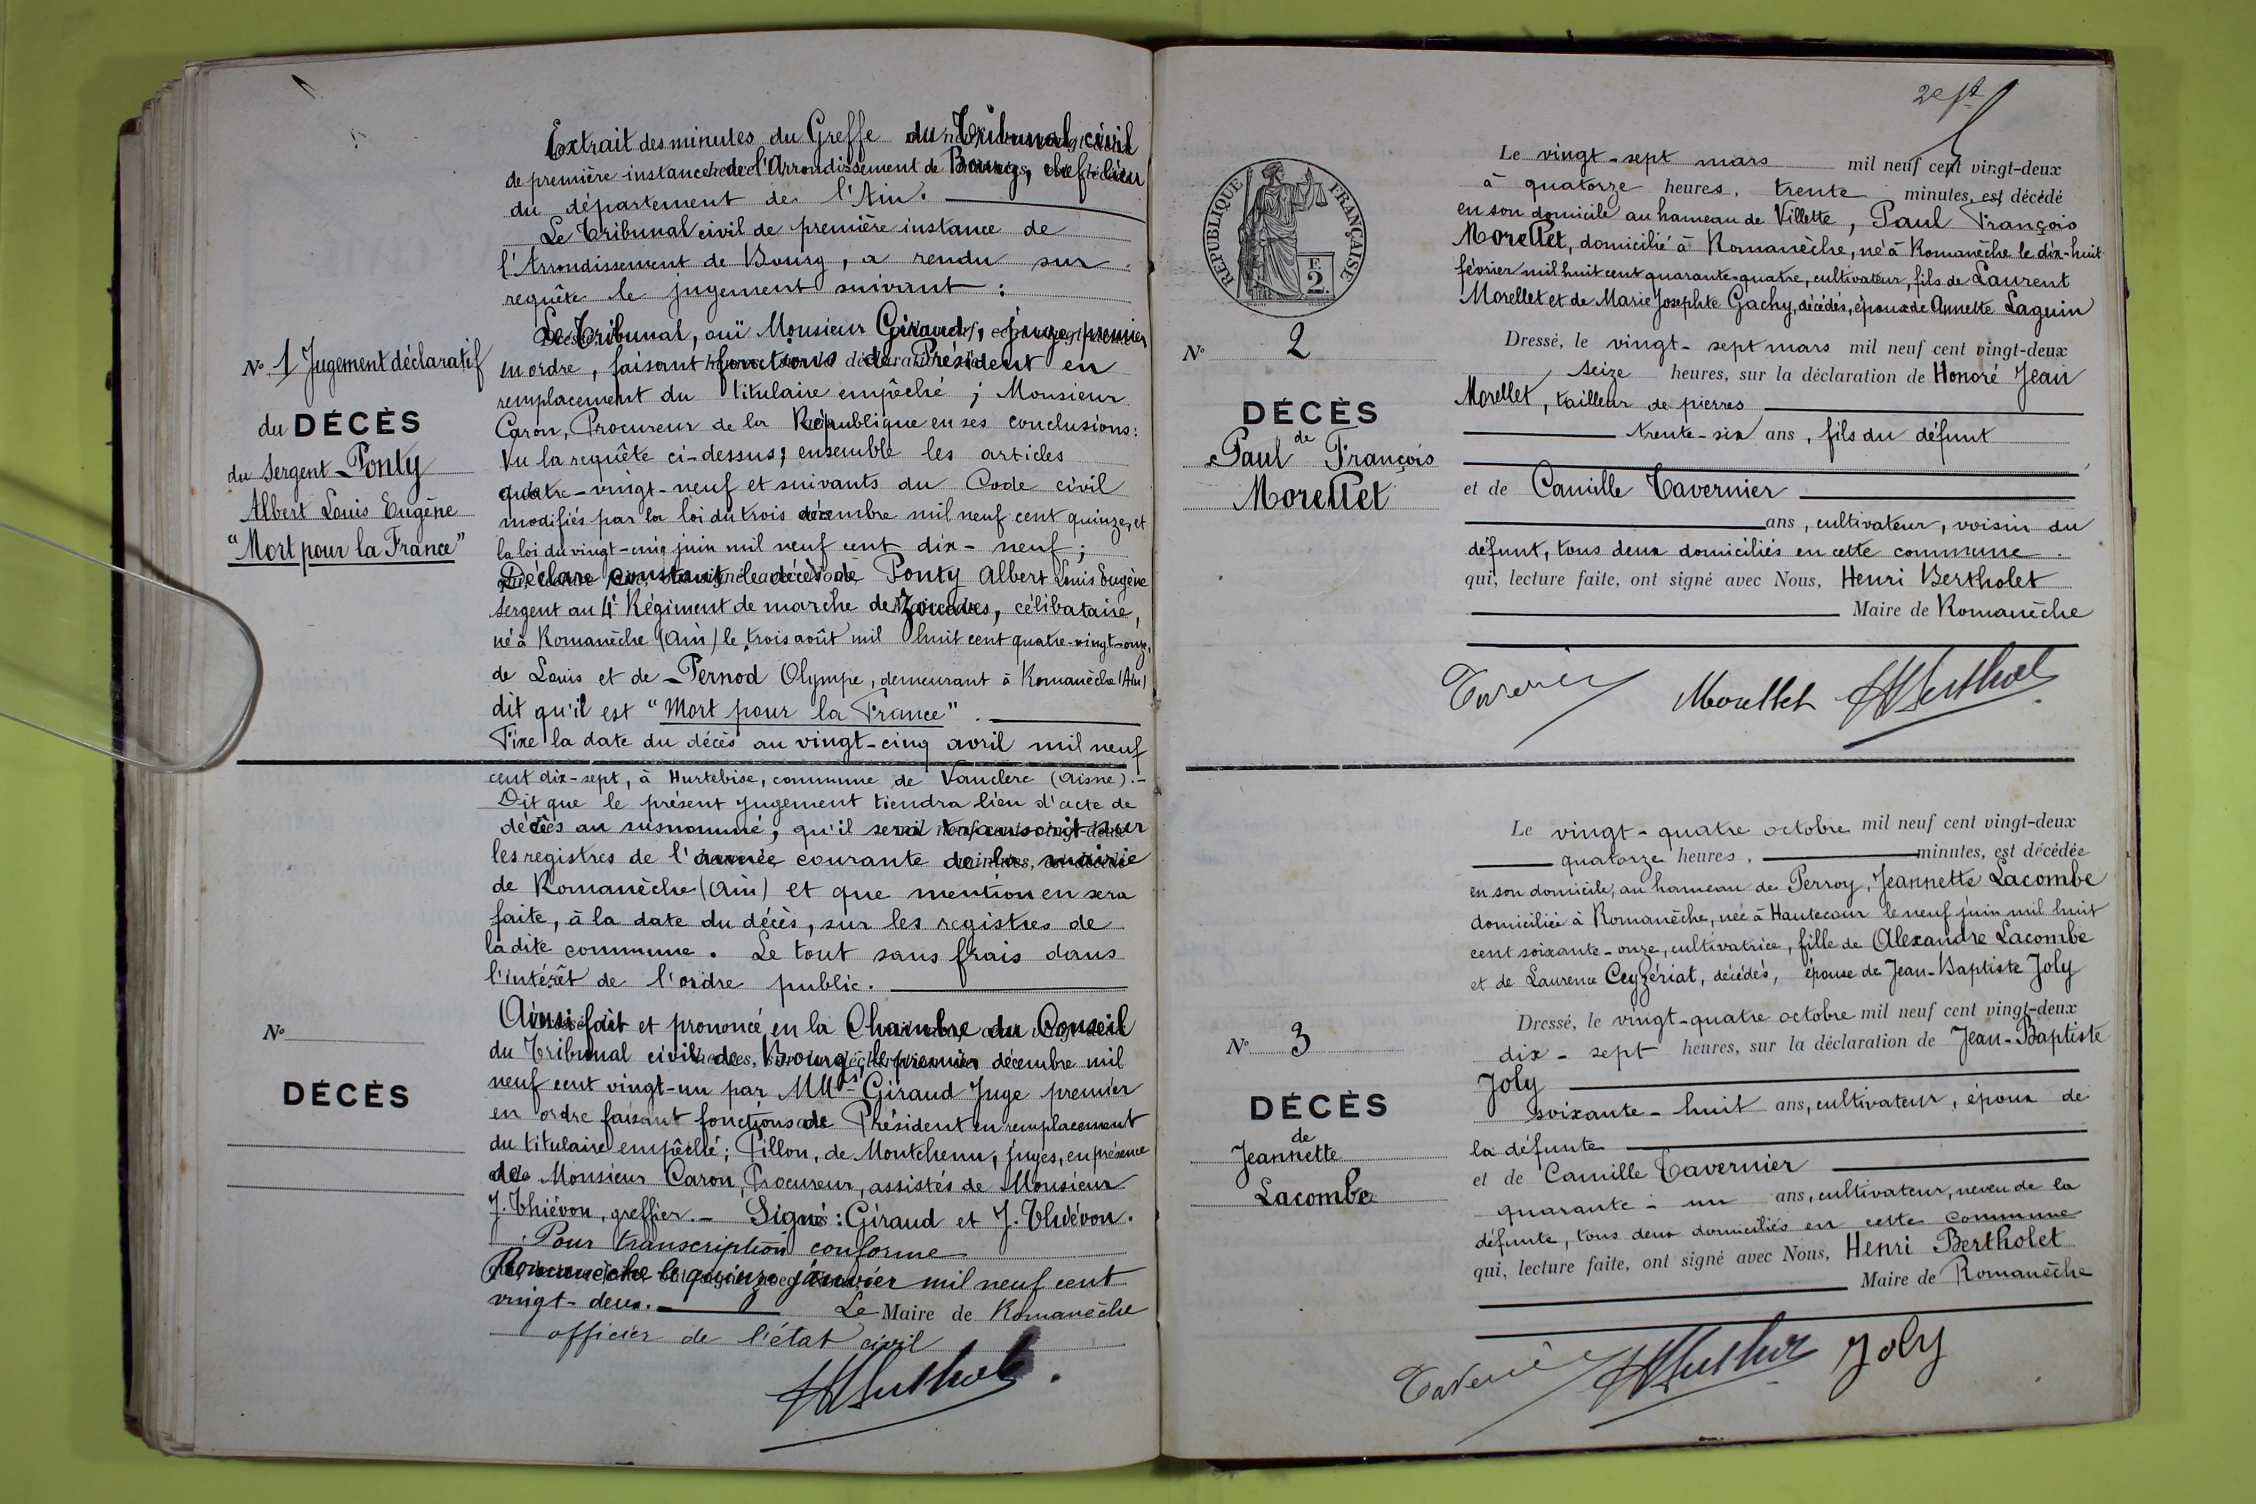 Extrait des minutes du Greffe du Tribunal civil
de première instance de l'Arrondissement de Bourg, chef-lieu
du département de l'Ain.
Le Tribunal civil de première instance de
l'Arrondissement de Bourg, a rendu sur
requête le jugement suivant :
Le Tribunal, ouï Monsieur Giraud, juge premier
en ordre, faisant fonctions de Président en
remplacement du titulaire empêché ; Monsieur
Caron, Procureur de la République en ses conclusions :
Vu la requête ci-dessus ; ensemble les articles
quatre-vingt-neuf et suivants du Code civil
modifiés par la loi du trois décembre mil neuf cent quinze, et
la loi du vingt-cinq juin mil neuf cent dix-neuf ;
Déclare constant le décès de Ponty Albert Louis Eugène
Sergent au 4e Régiment de marche de Zouaves, célibataire,
né à Romanèche (Ain) le trois août mil huit cent quatre-vingt-onze,
de Louis et de Pernod Olympe, demeurant à Romanèche (Ain)
dit qu'il est "Mort pour la France".
Fixe la date du décès au vingt-cinq avril mil neuf
cent dix-sept, à Hurtebise, commune de Vauclerc (Aisne).-
Dit que le présent jugement tiendra lieu d'acte de
décès au susnommé, qu'il sera transcrit sur
les registres de l'année courante de la mairie
de Romanèche (Ain) et que mention en sera
faite, à la date du décès, sur les registres de
la dite commune. Le tout sans frais dans
l'intérêt de l'ordre public.
Ainsi fait et prononcé en la Chambre du Conseil
du Tribunal civil de Bourg, le premier décembre mil
neuf cent vingt-un par MMrs Giraud Juge premier
en ordre faisant fonctions de Président en remplacement
du titulaire empêché ; Pillon, de Montchenu, juges, en présence
de Monsieur Caron, Procureur, assistés de Monsieur
J. Thiévon, greffier.- Signé : Giraud et J. Thiévon.
Pour transcription conforme
Romanèche le quinze janvier mil neuf cent
vingt-deux. Le Maire de Romanèche
officier de l'état civil
HBerthol
No 1 Jugement déclaratif
du DÉCÈS
du Sergent Ponty
Albert Louis Eugène
"Mort pour la France"
No
DÉCÈS
RÉPUBLIQUE FRANÇAISE
F.
2.
No 2
DÉCÈS
de
Paul François
Morellet
Le vingt-sept mars mil neuf cent vingt-deux
à quatorze heures, trente minutes, est décédé
en son domicile au hameau de Villette, Paul François
Morellet, domicilié à Romanèche, né à Romanèche le dix-huit
février mil huit cent quarante-quatre, cultivateur, fils de Laurent
Morellet et de Marie Josephte Gachy, décédés, époux de Annette Laguin
Dressé, le vingt-sept mars mil neuf cent vingt-deux
seize heures, sur la déclaration de Honoré Jean
Morellet, tailleur de pierres
trente-six ans, fils du défunt
et de Camille Tavernier
ans, cultivateur, voisin du
défunt, tous deux domiciliés en cette commune.
qui, lecture faite, ont signé avec Nous, Henri Bertholet
Maire de Romanèche
Tavernier Morellet HBerthol
No 3
DÉCÈS
de
Jeannette
Lacombe
Le vingt-quatre octobre mil neuf cent vingt-deux
quatorze heures, minutes, est décédée
en son domicile, au hameau de Perroy, Jeannette Lacombe
domiciliée à Romanèche, née à Hautecour le neuf juin mil huit
cent soixante-onze, cultivatrice, fille de Alexandre Lacombe
et de Laurence Ceyzériat, décédés, épouse de Jean-Baptiste Joly
Dressé, le vingt-quatre octobre mil neuf cent vingt-deux
dix-sept heures, sur la déclaration de Jean-Baptiste
Joly
soixante-huit ans, cultivateur, époux de
la défunte
et de Camille Tavernier
quarante-un ans, cultivateur, neveu de la
défunte, tous deux domiciliés en cette commune
qui, lecture faite, ont signé avec Nous, Henri Bertholet
Maire de Romanèche
Tavernier HBerthol Joly